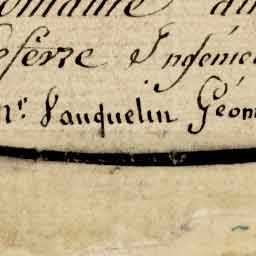 omanie au
efevre Ingénie
Mr. Vauquelin Géom